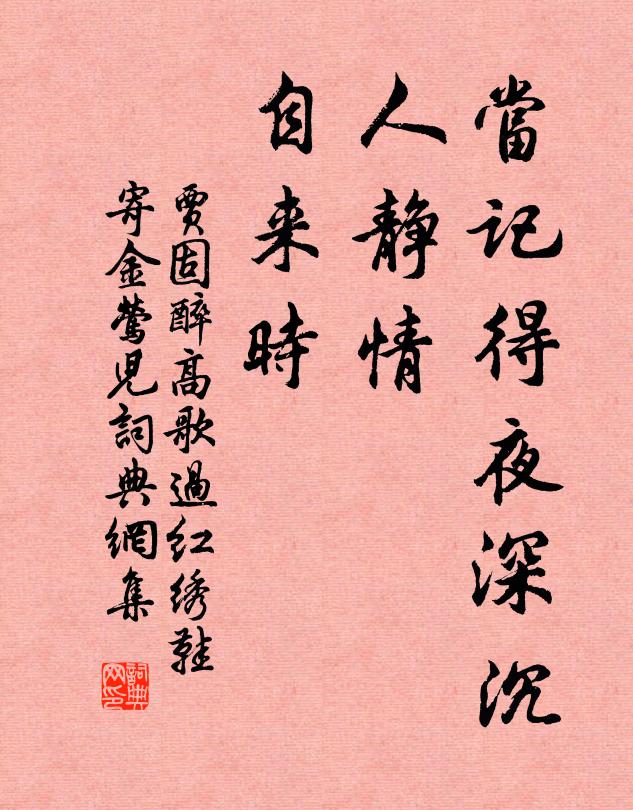 當記得夜深沉
人静情
自来時
賈固醉高歌過红绣鞋
寄金鶯児詞典網集
詞典
网印